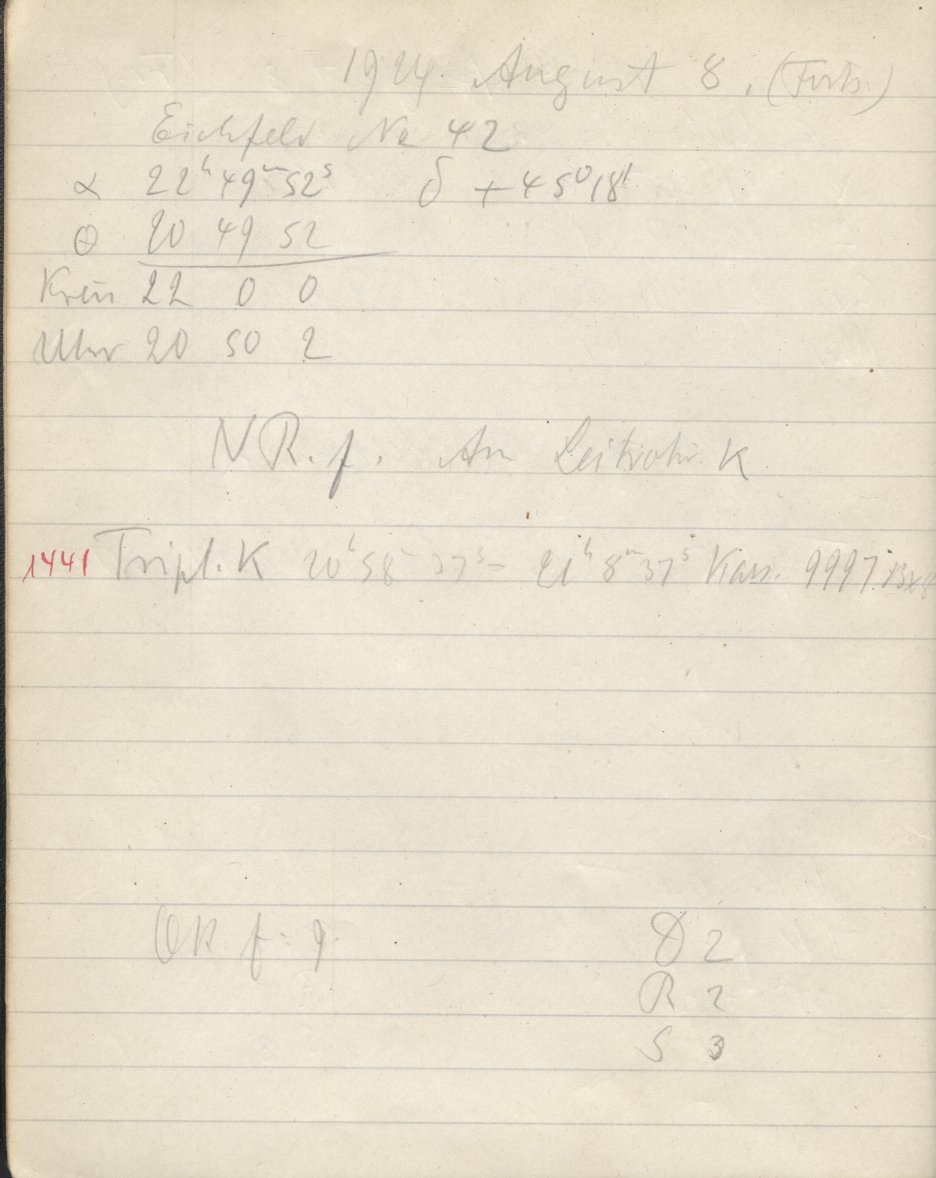 1924. August 8. (Forts.)
Eichfeld No 42
α 22ʰ 49ᵐ 52ˢ δ + 45° 18'
θ 20 49 52
Kreis 22 0 0
Uhr 20 50 2
NR. f. Am Leitrohr K
1441 Tripl. K 20ʰ 58ᵐ 37ˢ - 21ʰ 8ᵐ 37ˢ Kass. 9997.
f = 9.
D 2
R 2
S 3